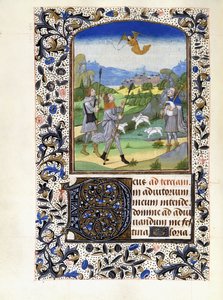 Deus ad terciam.
in adiutorium
meum intende.
domine ad adiu
uandum me fes
tina. Gloria.